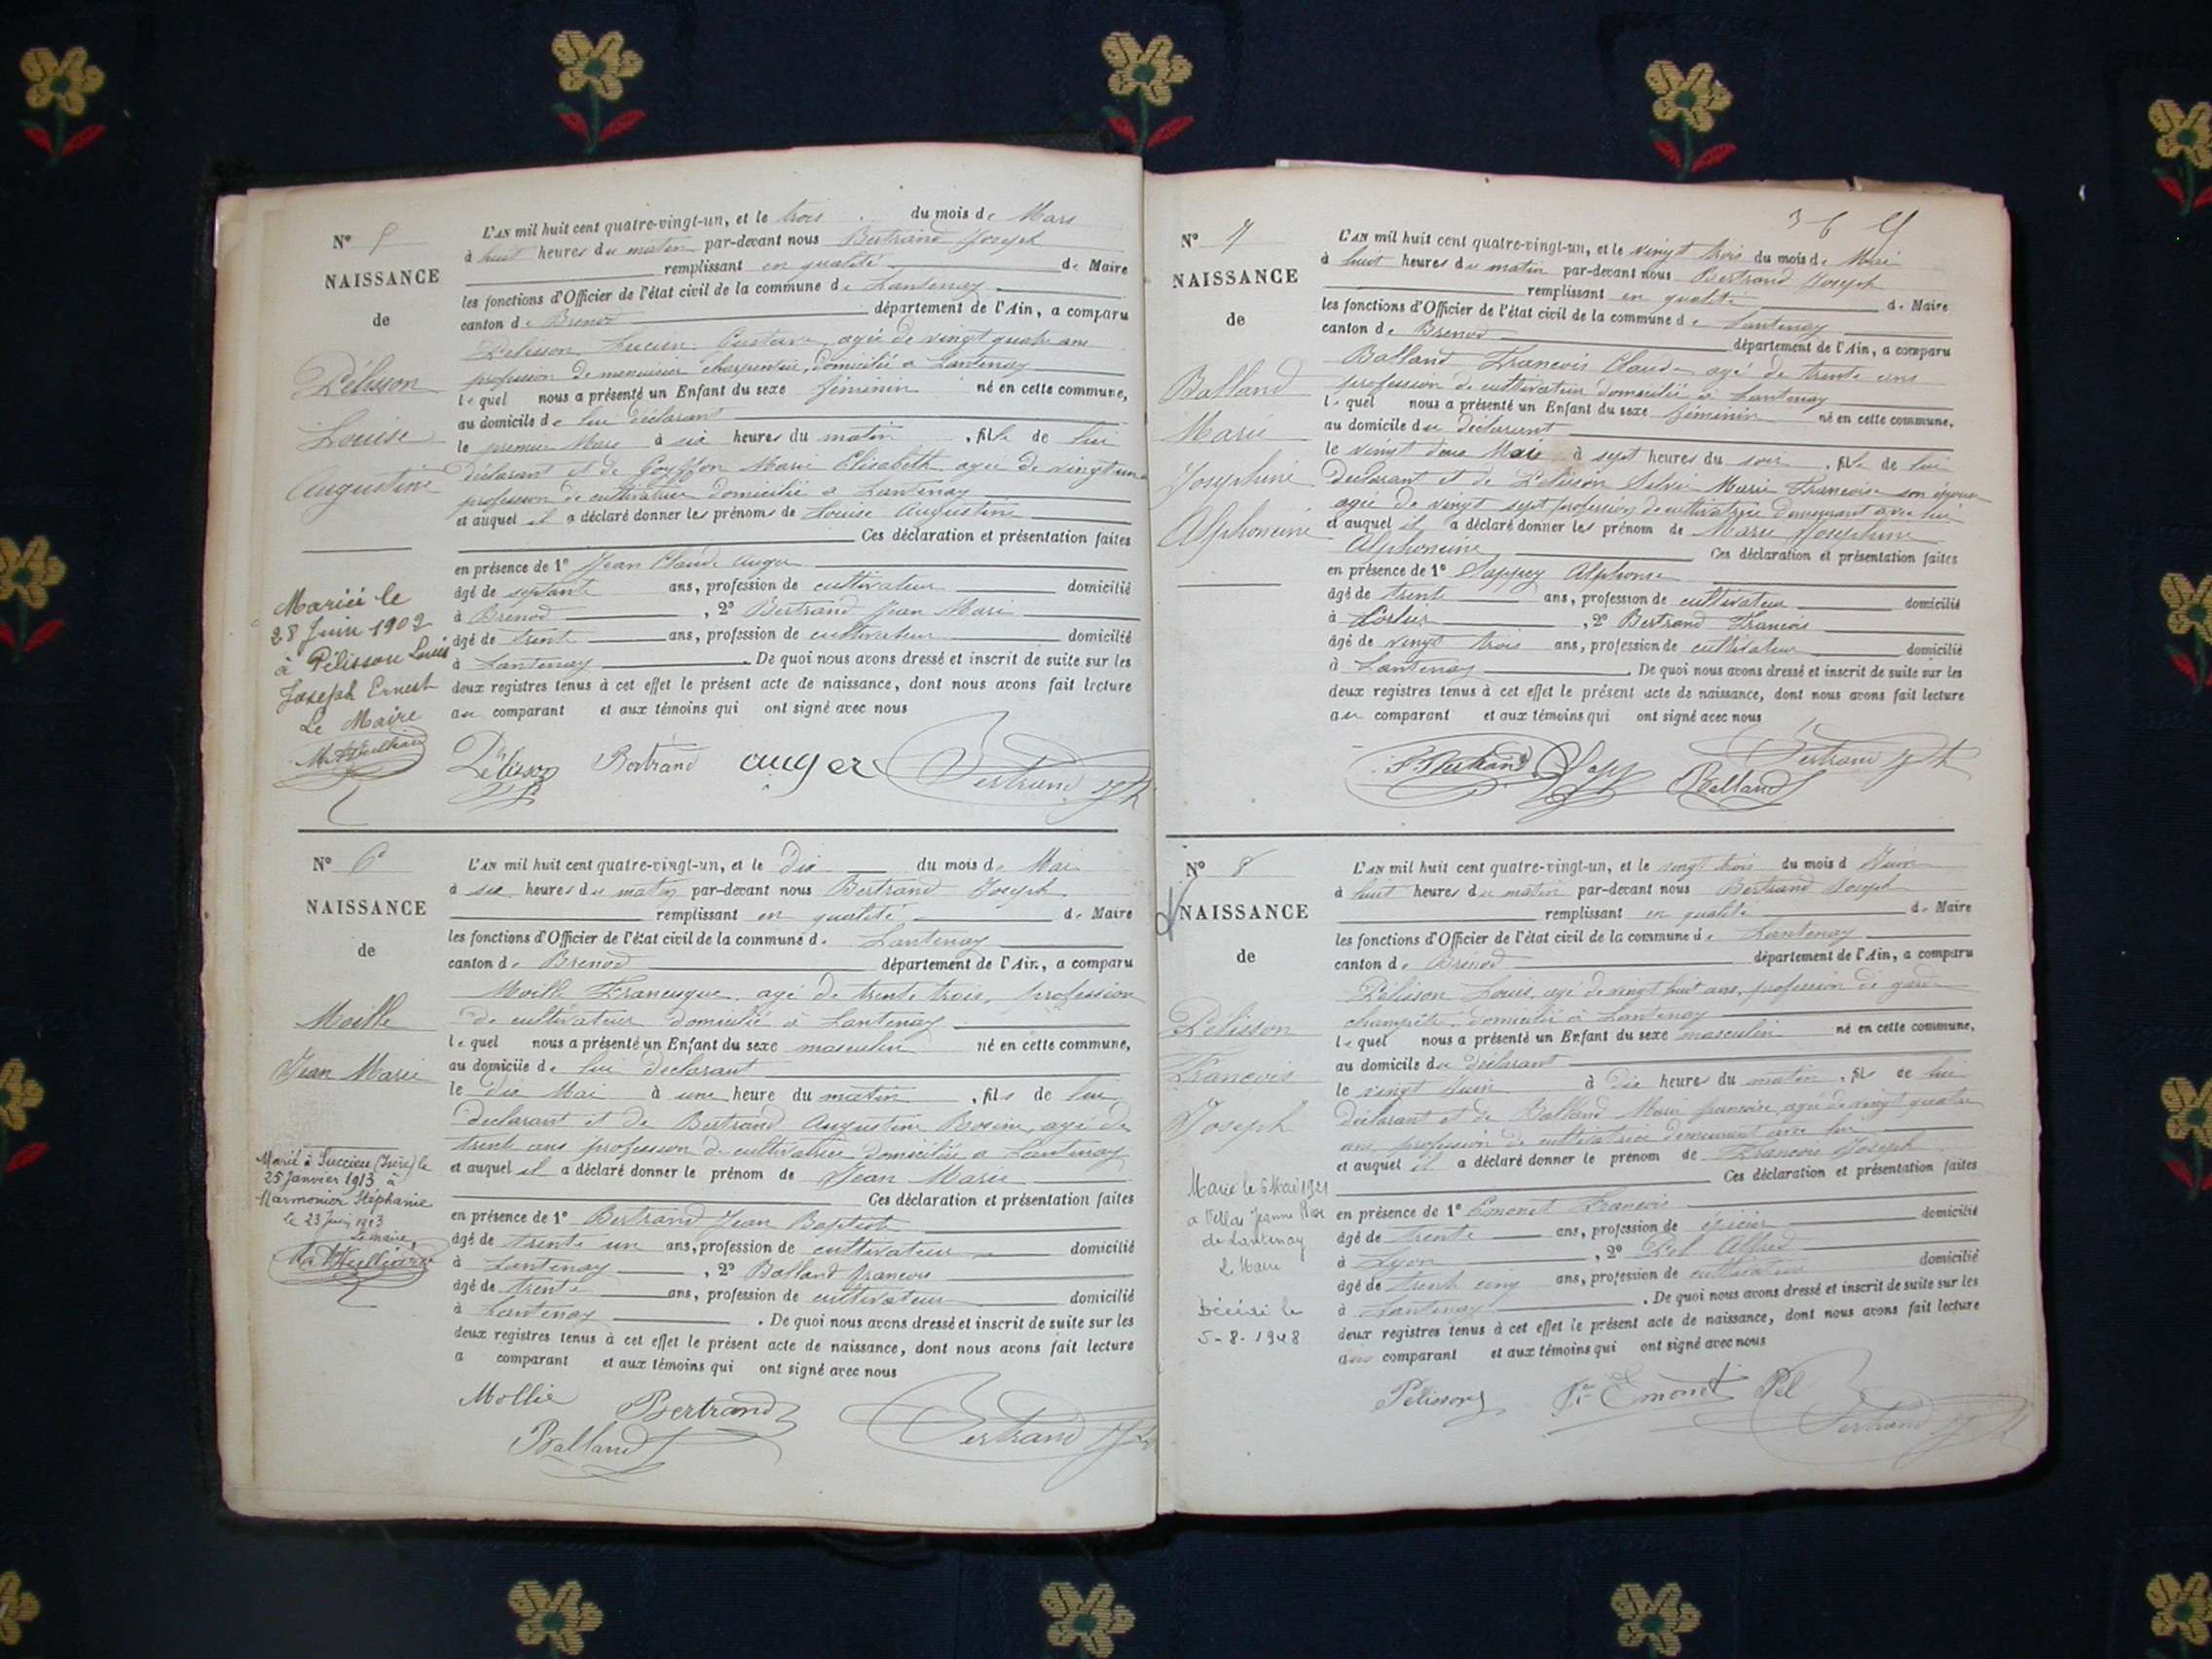 N° 5
NAISSANCE
de
Pélisson
Louise
Augustine
Mariée le
28 Juin 1902
à Pélisson Louis
Joseph Ernest
Le Maire
L'AN mil huit cent quatre-vingt-un, et le trois du mois de Mars
à huit heures du matin par-devant nous Bertrand Joseph
remplissant en qualité de Maire
les fonctions d'Officier de l'état civil de la commune de Lantenay
canton de Brenod département de l'Ain, a comparu
Pelisson Lucien Gustave, agé de vingt quatre ans
profession de menuisier charpentier, domicilié à Lantenay
lequel nous a présenté un Enfant du sexe féminin né en cette commune,
au domicile de lui déclarant
le premier Mars à six heures du matin, fille de lui
déclarant et de Goyffon Marie Elisabeth agée de vingt un
profession de cultivatrice domicilié a Lantenay
et auquel il a déclaré donner les prénoms de Louise Augustine
Ces déclaration et présentation faites
en présence de 1° Jean Claude Auger
âgé de septante ans, profession de cultivateur domicilié
à Brenod, 2° Bertrand Jean Marie
âgé de trente ans, profession de cultivateur domicilié
à Lantenay. De quoi nous avons dressé et inscrit de suite sur les
deux registres tenus à cet effet le présent acte de naissance, dont nous avons fait lecture
au comparant et aux témoins qui ont signé avec nous
Pélisson Bertrand auger Bertrand Jph
N° 6
NAISSANCE
de
Moille
Jean Marie
Marié à Succieu (Isère) le
25 Janvier 1913 à
Marmonier Stéphanie
Le 23 Juin 1913
Le maire,
L'AN mil huit cent quatre-vingt-un, et le dix du mois de Mai
à six heures du matin par-devant nous Bertrand Joseph
remplissant en qualité de Maire
les fonctions d'Officier de l'état civil de la commune de Lantenay
canton de Brenod département de l'Ain, a comparu
Moille Francisque, agé de trente trois, profession
de cultivateur domicilié à Lantenay
lequel nous a présenté un Enfant du sexe masculin né en cette commune,
au domicile de lui declarant
le dix Mai à une heure du matin, fils de lui
declarant et de Bertrand Augustine Rosine, agé de
trente ans profession de cultivatrice domiciliée a Lantenay
et auquel il a déclaré donner le prénom de Jean Marie
Ces déclaration et présentation faites
en présence de 1° Bertrand Jean Baptiste
âgé de trente un ans, profession de cultivateur domicilié
à Lantenay, 2° Balland françois
âgé de trente ans, profession de cultivateur domicilié
à Lantenay. De quoi nous avons dressé et inscrit de suite sur les
deux registres tenus à cet effet le présent acte de naissance, dont nous avons fait lecture
a comparant et aux témoins qui ont signé avec nous
Mollie Bertrand Bertrand Jph
Balland
N° 7
NAISSANCE
de
Balland
Marie
Josephine
Alphonsine
L'AN mil huit cent quatre-vingt-un, et le vingt trois du mois de Mai
à huit heures du matin par-devant nous Bertrand Joseph
remplissant en qualité de Maire
les fonctions d'Officier de l'état civil de la commune de Lantenay
canton de Brenod département de l'Ain, a comparu
Balland François Claude agé de trente ans
profession de cultivateur domicilié à Lantenay
lequel nous a présenté un Enfant du sexe féminin né en cette commune,
au domicile du déclarant
le vingt deux Mai à sept heures du soir, fille de lui
Declarant et de Pelisson Marie Françoise son épouse
agée de vingt sept profession de cultivatrice demeurant avec lui
et auquel il a déclaré donner les prénom de Marie Josephine
Alphonsine Ces déclaration et présentation faites
en présence de 1° Sappey Alphonse
âgé de trente ans, profession de cultivateur domicilié
à Corlier, 2° Bertrand François
âgé de vingt trois ans, profession de cultivateur domicilié
à Lantenay. De quoi nous avons dressé et inscrit de suite sur les
deux registres tenus à cet effet le présent acte de naissance, dont nous avons fait lecture
au comparant et aux témoins qui ont signé avec nous
Bertrand Bertrand Jph
Balland
N° 8
NAISSANCE
de
Pelisson
Francois
Joseph
Marié le 6 Mai 1921
a Jeanne
de Lantenay
Le Maire
Décédé le
5-8-1948
L'AN mil huit cent quatre-vingt-un, et le vingt trois du mois d Juin
à huit heures du matin par-devant nous Bertrand Joseph
remplissant en qualité de Maire
les fonctions d'Officier de l'état civil de la commune de Lantenay
canton de Brénod département de l'Ain, a comparu
Pélisson Louis, agé de vingt huit ans, profession de garde
champêtre, domicilié à Lantenay
lequel nous a présenté un Enfant du sexe masculin né en cette commune,
au domicile du déclarant
le vingt Juin à dix heures du matin, fils de lui
déclarant et de Balland Marie françoise, agée de vingt quatre
ans, profession de cultivatrice demeurant avec lui
et auquel il a déclaré donner le prénom de François Joseph
Ces déclaration et présentation faites
en présence de 1° Emonet François
âgé de trente ans, profession de épicier domicilié
à Lyon, 2° Pel Alfred
âgé de trente cinq ans, profession de cultivateur domicilié
à Lantenay. De quoi nous avons dressé et inscrit de suite sur les
deux registres tenus à cet effet le présent acte de naissance, dont nous avons fait lecture
au comparant et aux témoins qui ont signé avec nous
Pelisson Emonet Pel
Bertrand Jph